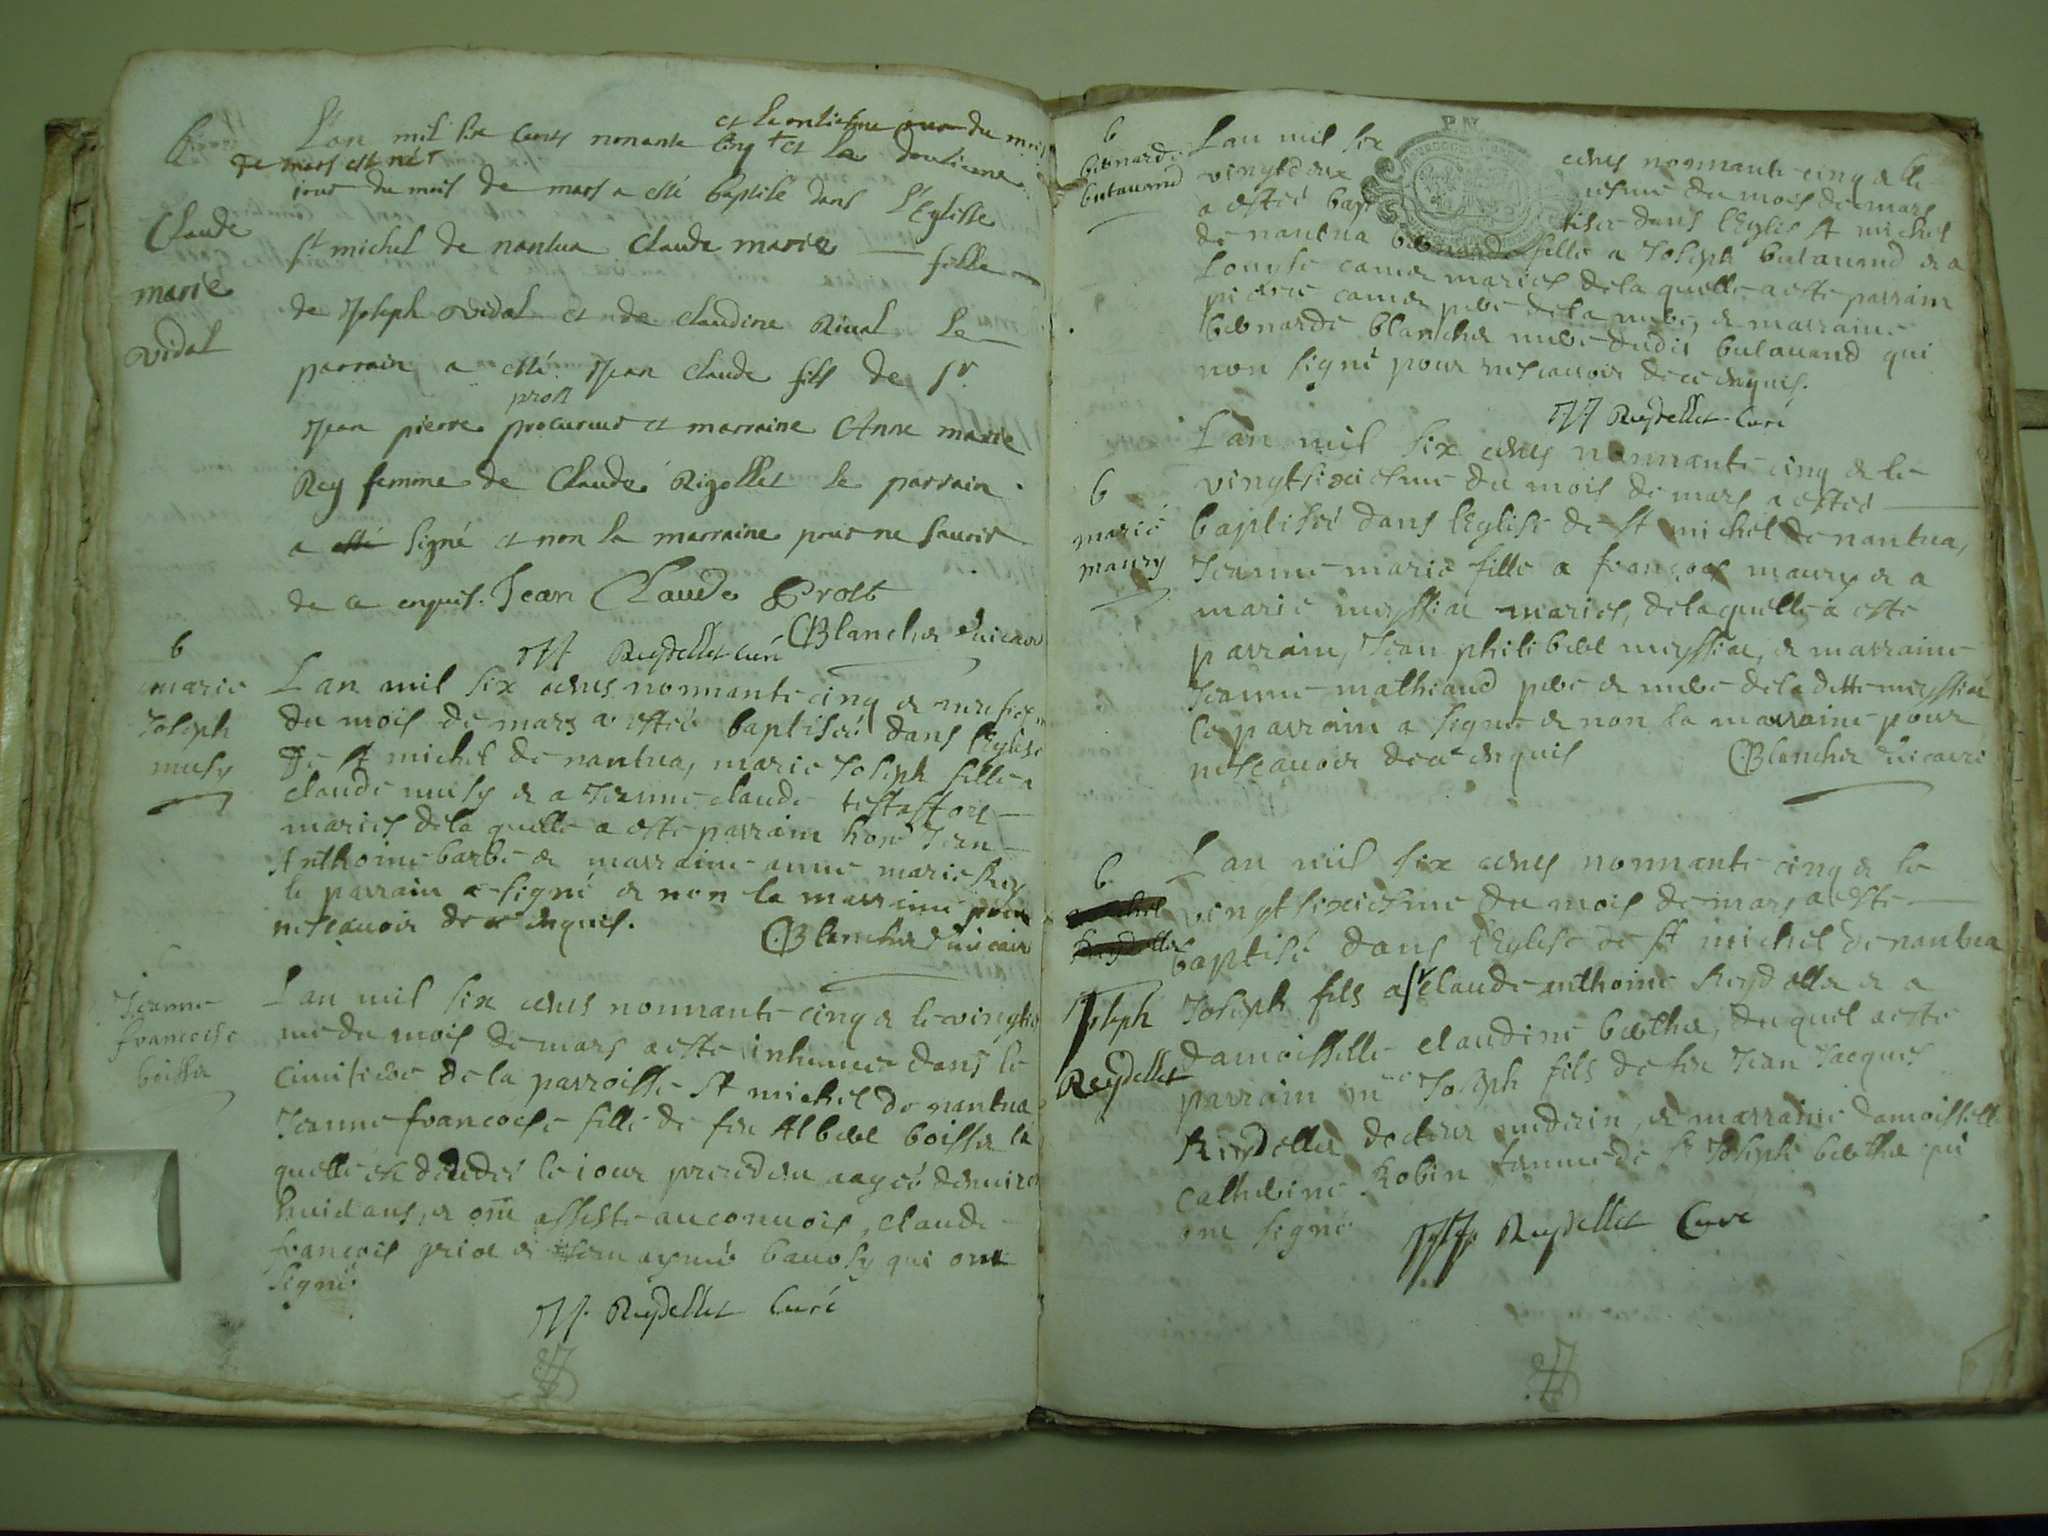 b
L'an mil six cents nonante cinq + et le
et le onziesme jour du mois
de mars est né +
douzieme
jour du mois de mars a esté baptisé dans l'Eglisse
Claude
marie
vidal
st michel de nantua Claude marie fille
de Joseph vidal et de claudine Rival le
parrain a esté Jean claude fils de sr
prost
Jean pierre procureur et marraine Anne marie
Rey femme de Claude Rigollet le parrain
a esté signé et non la marraine pour ne savoir
de ce enquis. Jean Claude Prost
CBlanchet vicaire
JJ Reydellet curé
b
marie
Joseph
musy
L an mil six cents nonnante cinq et
du mois de mars a esteé baptiseé dans l'Eglise
de st michel de nantua, marie Joseph fille a
claude musy et a Jeanne claude
mariés de la quelle a este parrain hone Jean
Anthoine barbe et marraine anne marie Rey
le parrain a signé et non la marraine pour
ne scavoir de ce enquis. CBlanchet vicaire
Jeanne
francoise
boisset
L an mil six cents nonnante cinq et le vingtie
me du mois de mars a este inhumeé dans le
cimitiere de la parroisse st michel de nantua
Jeanne francoise fille de feu Albert boisset la
quelle est decedeé le jour precedent aageé denviron
huict ans, et ont assisté au convois, claude
francois et Jean aymé bavosy qui ont
signé
JJ. Reydellet Curé
b
bernarde
butavand
L an mil six cents nonnante cinq et le
vingtdeuxiesme du mois de mars
a esteé baptisee dans l'Eglise st michel
de nantua bernarde fille a Joseph butavand et a
Louyse camer mariés de la quelle a este parrain
pierre camer pere de la mere, et marraine
bernarde blanchet mere dudit butavand qui
non signé pour ne scavoir de ce enquis.
JJ Reydellet Curé
b
marie
maury
L an mil six cents nonnante cinq et le
vingtsixiesme du mois de mars a esteé
baptiseé dans l'Eglise de st michel de nantua,
Jeanne marie fille a francois maury et a
marie meyssiat mariés, de la quelle a este
parrain, Jean philibert meyssiat, et marraine
Jeanne mathiand pere et mere de la dette meyssiat
le parrain a signé et non la marraine pour
ne scavoir de ce enquis CBlanchet vicaire
b
Joseph
Reydellet
L an mil six cents nonnante cinq et le
vingt sixiesme du mois de mars a este
baptisé dans l'Eglise de st michel de nantua
Joseph fils a sr claude anthoine Reydellet et a
damoisselle claudine berthet, du quel a este
parrain me Joseph fils de feu Jean Jacques
Reydellet docteur medecin, et marraine damoisselle
Catherine Robin femme de sr Joseph berthet qui
ont signé
JJ. Reydellet Curé